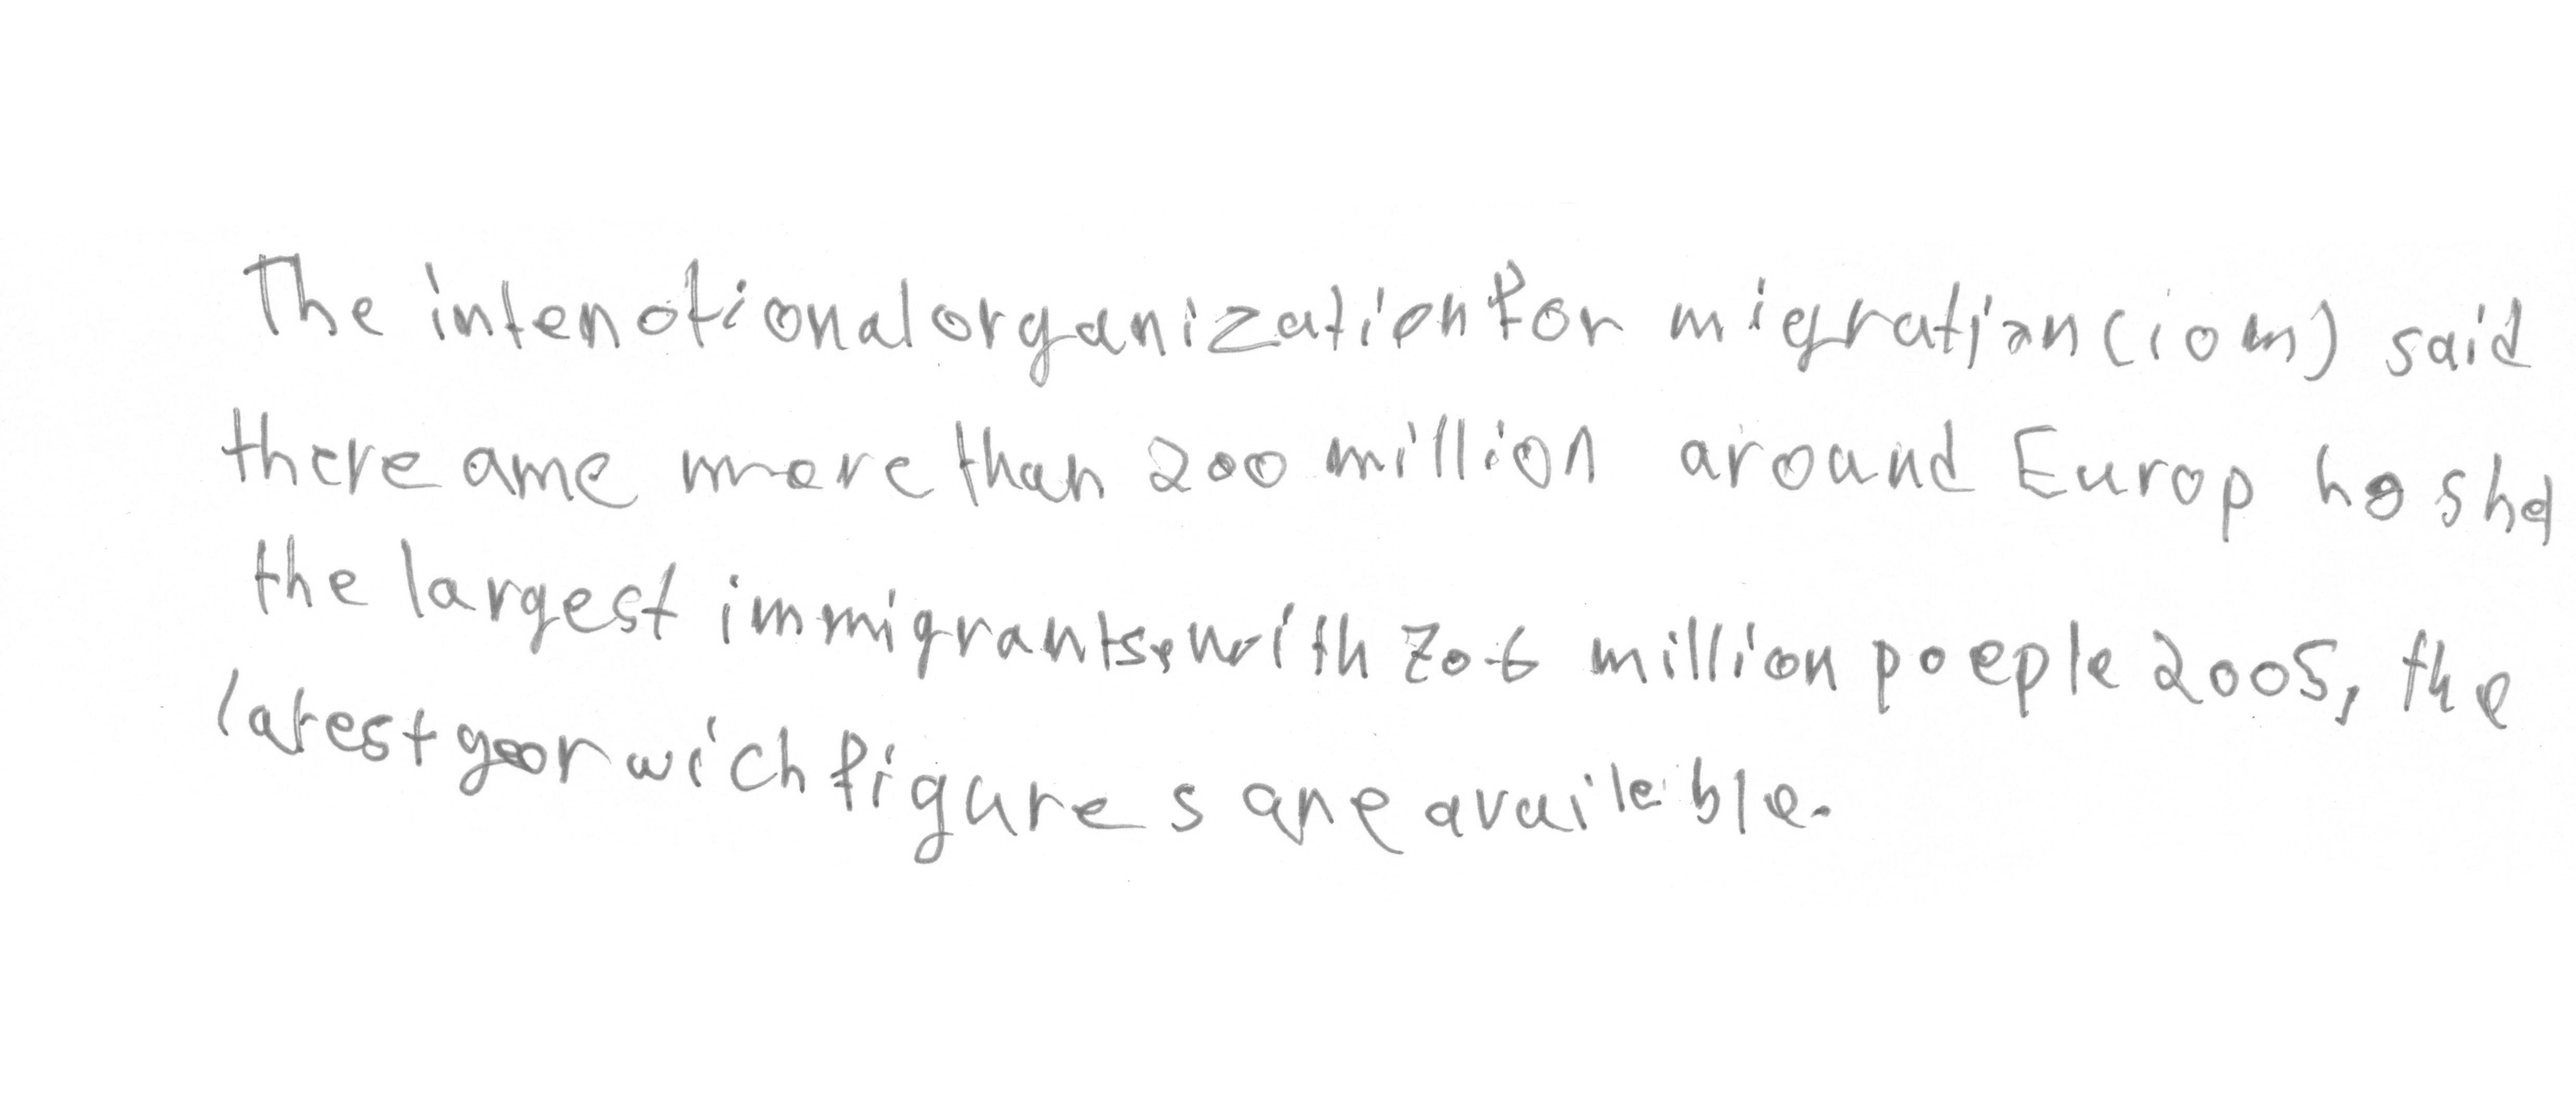 The intenotional organization for migration (iom) said
there ame more than 200 million around Europ hoshd
the largest immigrants, with 70-6 million poeple 2005, the
latest year wich figures are availeble.